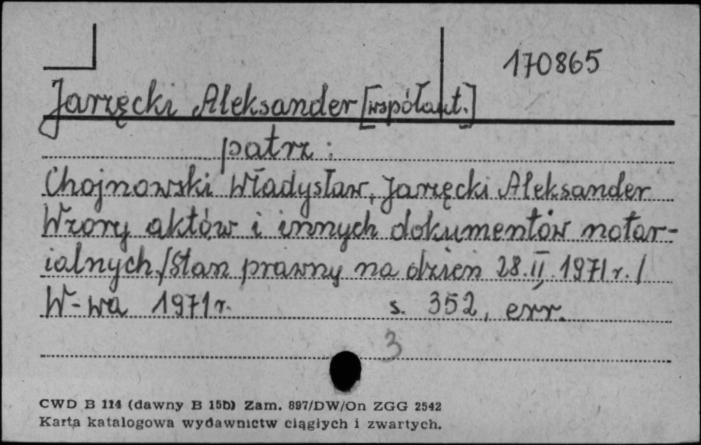 170865
Jarzęcki Aleksander [współaut.]
patrz:
Chojnowski Władysław, Jarzęcki Aleksander
Wzory aktów i innych dokumentów notar-
ialnych./Stan prawny na dzień 28.II.1971 r./
W-wa 1971 r. s. 352, err.
3
CWD B 114 (dawny B 15b) Zam. 897/DW/On ZGG 2542
Karta katalogowa wydawnictw ciągłych i zwartych.